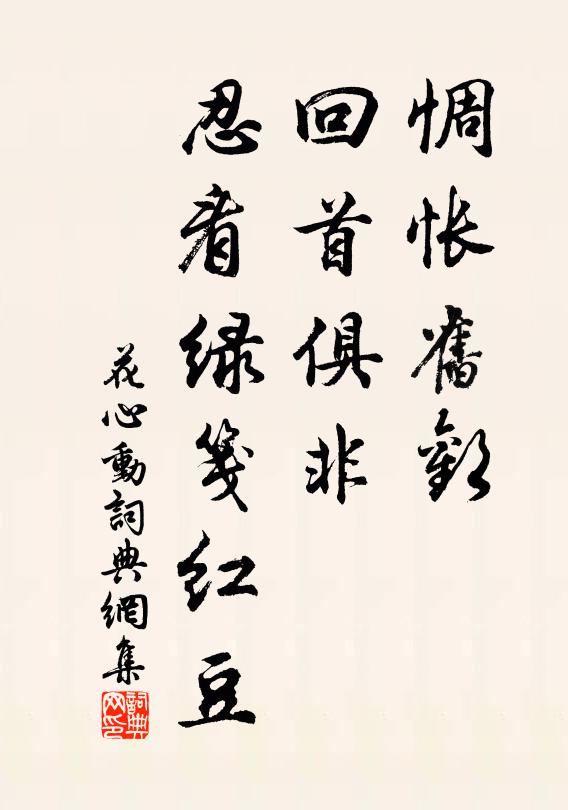 惆怅舊歡
回首俱非
忍看绿笺红豆
花心動詞典網集
詞典网印